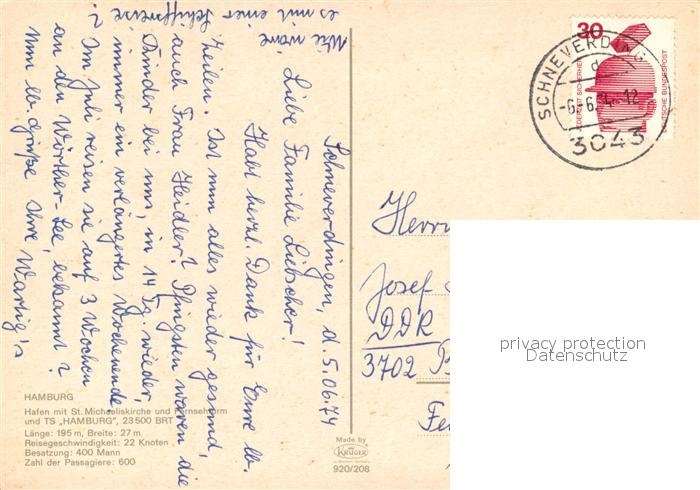 Schneverdingen, d. 5.06.74
Liebe Familie Lübscher!
Habt herzl. Dank für Eure lb.
Zeilen. Ist nun alles wieder gesund,
auch Frau Heidler? Pfingsten waren die
Kinder bei uns, in 14 Tg. wieder,
immer ein verlängertes Wochenende.
Im Juli reisen sie auf 3 Wochen
an den Wörther-See, bekannt?
Nun lb. Grüße Ihre Wartig's
Wie wäre
es mit einer
Schiffsreise
?
HAMBURG
Hafen mit St. Michaeliskirche und Fernsehturm
und TS „HAMBURG", 23500 BRT
Länge: 195 m, Breite: 27 m
Reisegeschwindigkeit: 22 Knoten
Besatzung: 400 Mann
Zahl der Passagiere: 600
Made by
KRÜGER
920/208
30
JEDERZEIT SICHERHEIT
DEUTSCHE BUNDESPOST
SCHNEVERDINGEN
d
-6.-6.74-12
3043
Herrn
Josef
DDR
3702
privacy protection
Datenschutz